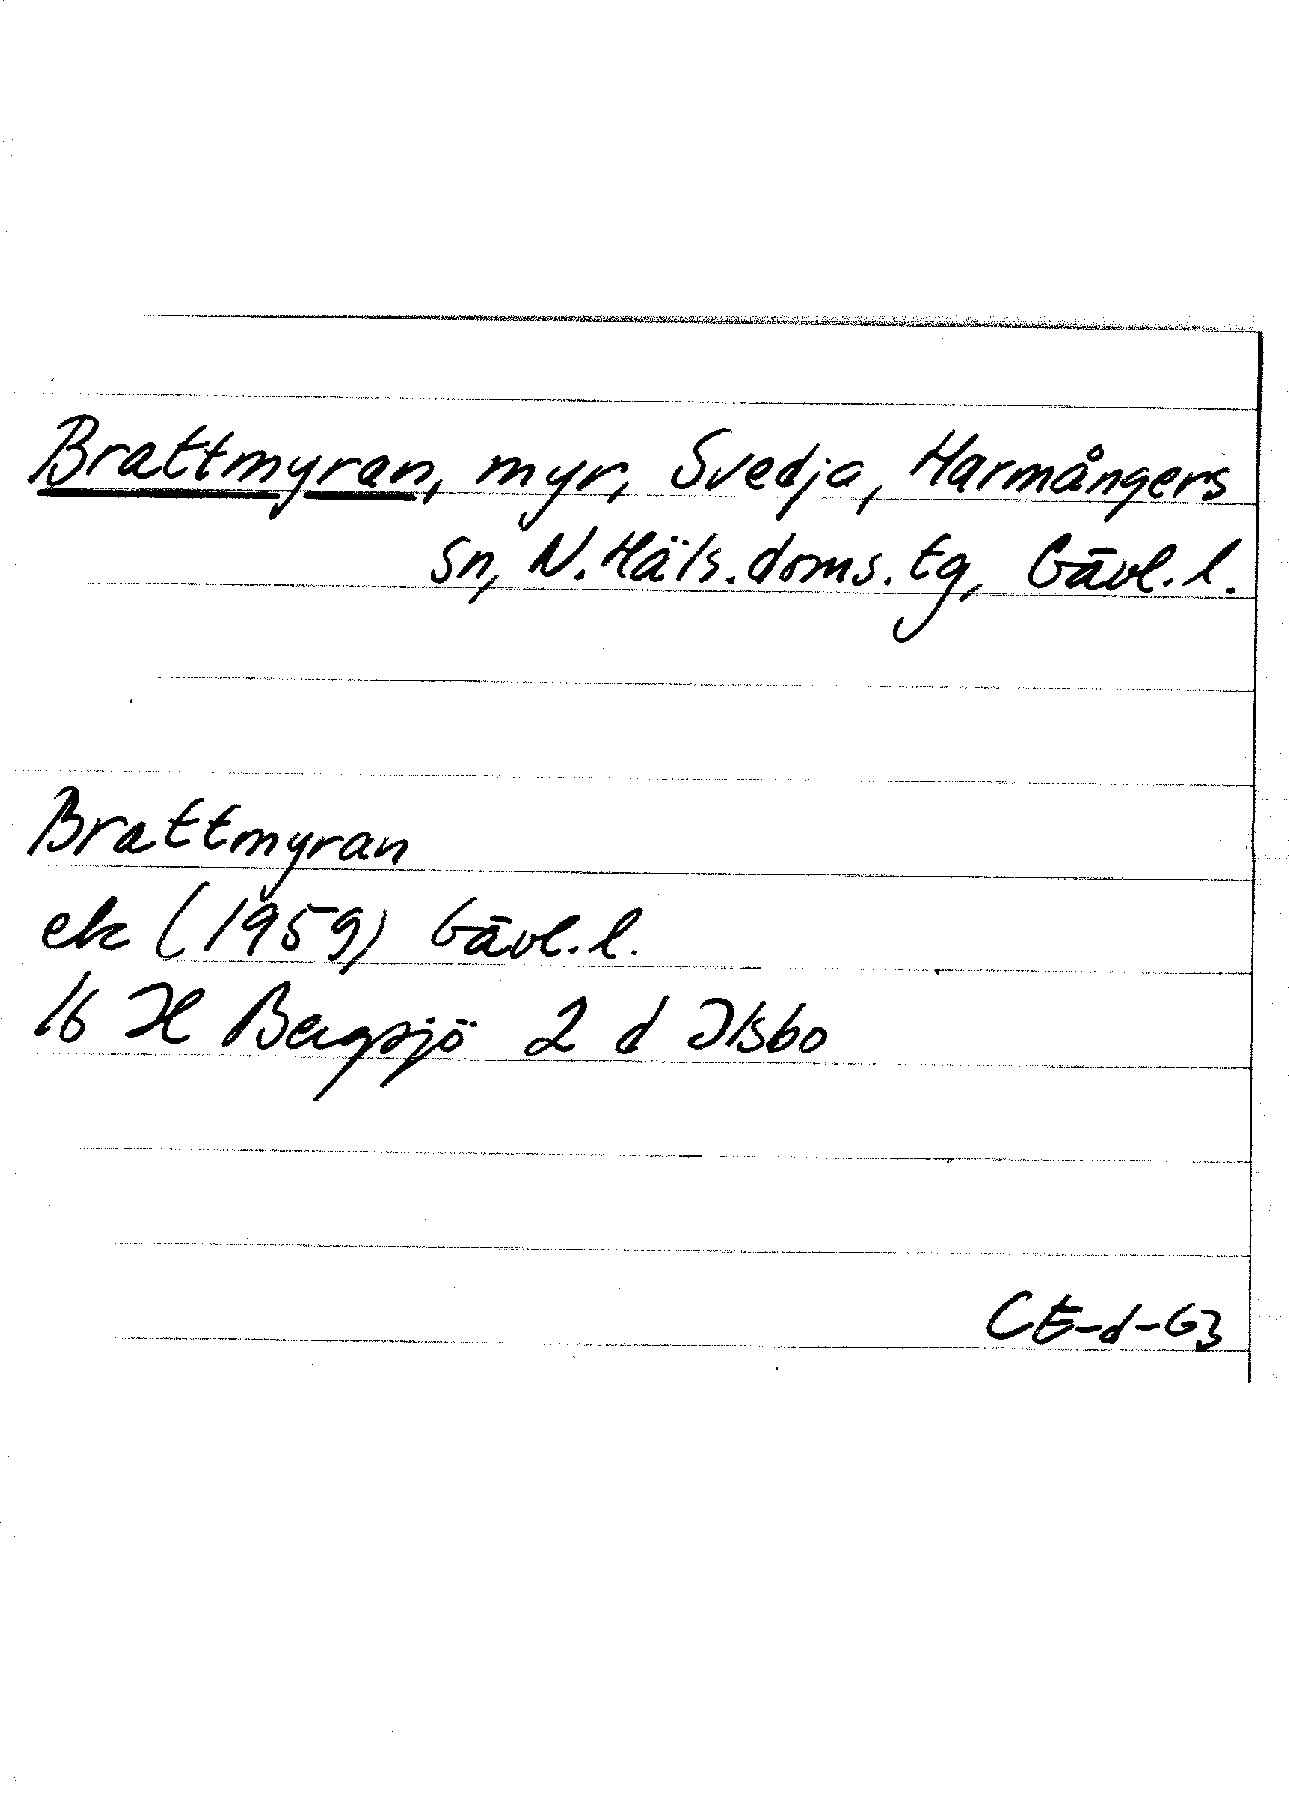 Brattmyran, myr, Svedja, Harmångers
sn, N. Häls. doms. tg, Gävl. l.
Brattmyran
ek (1959) Gävl. l.
16 H Bergsjö 2 d Ilsbo
CE-d-63